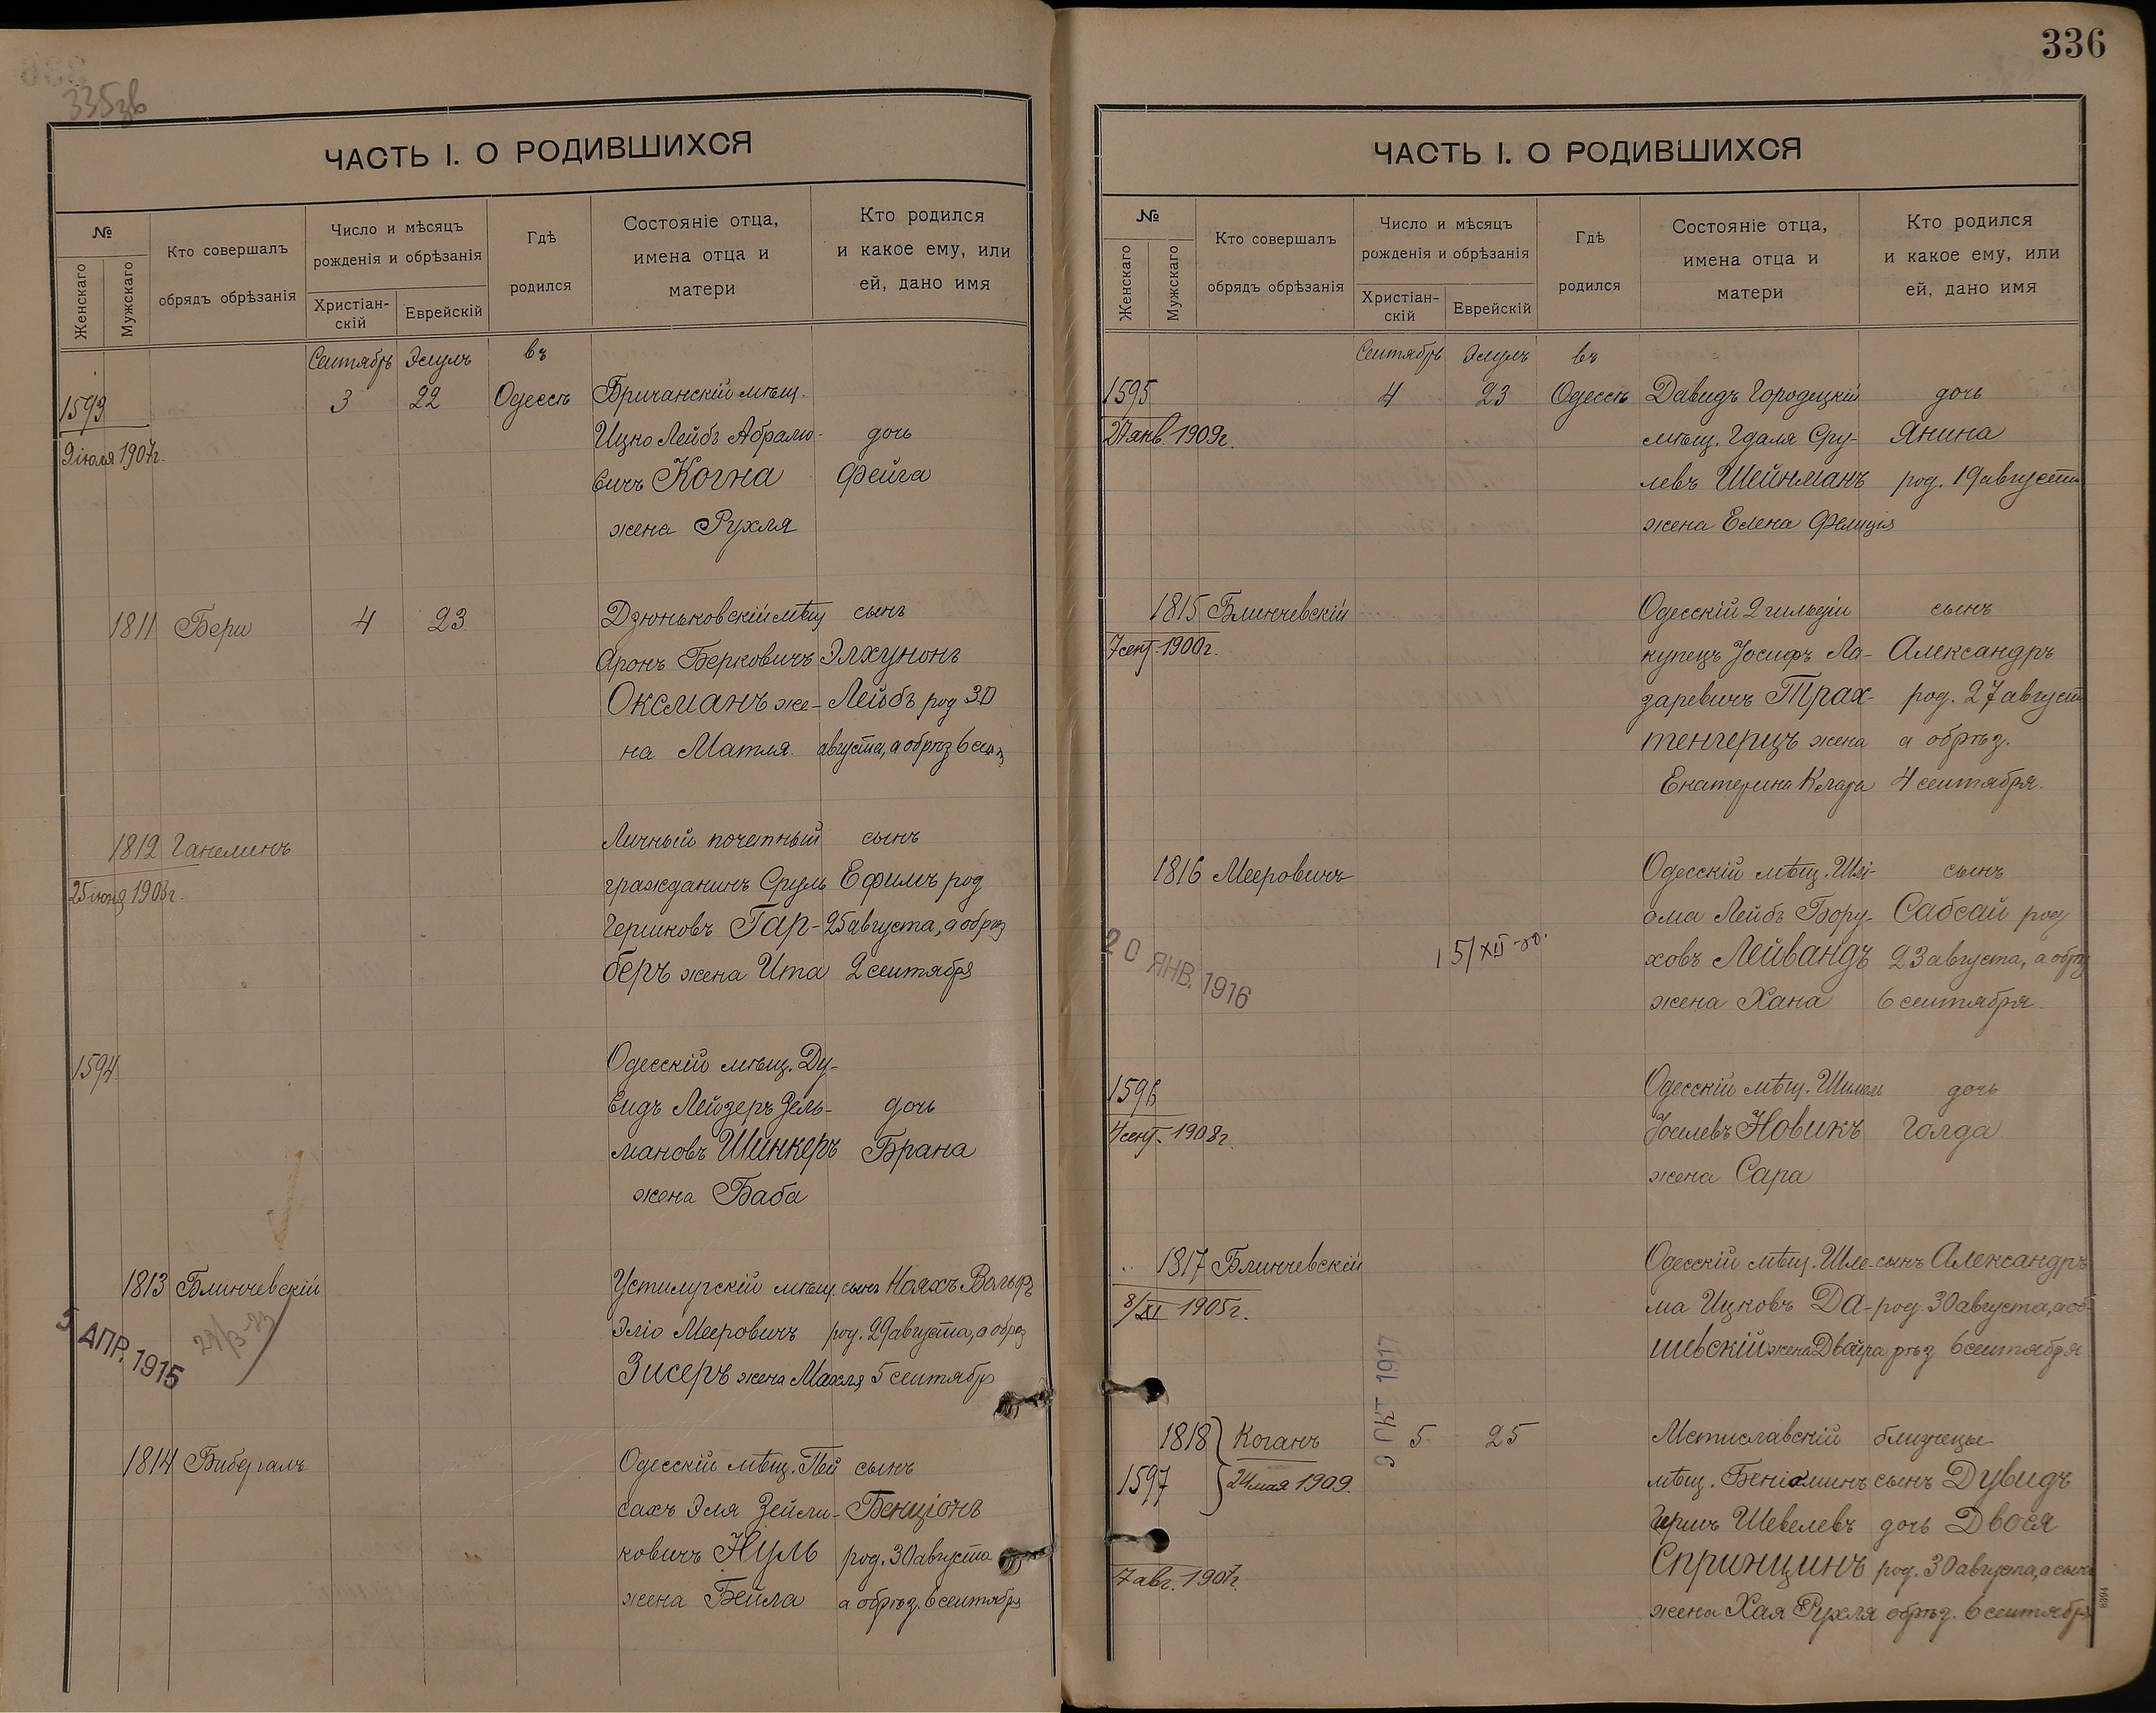 335зв
ЧАСТЬ I. О РОДИВШИХСЯ
№
Женскаго
Мужскаго
Кто совершалъ
обрядъ обрѣзанія
Число и мѣсяцъ
рожденія и обрѣзанія
Христіан-
скій
Еврейскій
Гдѣ
родился
Состояніе отца,
имена отца и
матери
Кто родился
и какое ему, или
ей, дано имя
Сентябрь Элулъ въ
1593 3 22 Одессѣ Бричанскій мѣщ.
9 іюля 1907г. Ицко Лейбъ Абрамо- дочь
вичъ Когна Фейга
жена Рухля
1811 Бери 4 23 Дзюньковскій мѣщ сынъ
Аронъ Берковичъ Элхунонъ
Оксманъ же- Лейбъ род 30
на Матля августа, а обрѣз 6 сен
1812 Ганелинъ Личный почетный сынъ
25 іюня 1903г. гражданинъ Сруль Ефимъ род
Гершковъ Гар- 25 августа, а обрѣз
беръ жена Ита 2 сентября
1594 Одесскій мѣщ. Ду-
видъ Лейзеръ Зель- дочь
мановъ Шинкеръ Брана
жена Баба
1813 Блинчевскій Устилугскій мѣщ. сынъ Нояхъ Вольфъ
5 АПР. 1915 Эліо Мееровичъ род. 29 августа, а обрѣз
Зисеръ жена Махля 5 сентябр
1814 Бибергалъ Одесскій мѣщ. Пей сынъ
сахъ Эля Зейли- Бенціонъ
ковичъ Нуль род. 30 августа
жена Бейла а обрѣз. 6 сентябрь
336
ЧАСТЬ I. О РОДИВШИХСЯ
№
Женскаго
Мужскаго
Кто совершалъ
обрядъ обрѣзанія
Число и мѣсяцъ
рожденія и обрѣзанія
Христіан-
скій
Еврейскій
Гдѣ
родился
Состояніе отца,
имена отца и
матери
Кто родился
и какое ему, или
ей, дано имя
Сентябрь Элулъ въ
1595 4 23 Одессѣ Давидъ Городецкій дочь
27 янв. 1909г. мѣщ. Гдаля Сру- Янина
левъ Шейнманъ род. 19 августа
жена Елена Фелиція
1815 Блинчевскій Одесскій 2 гильдіи сынъ
7 сент. 1900г. купецъ Іосифъ Ла- Александръ
заревичъ Трах- род. 27 август
тенгерцъ жена а обрѣз.
Екатерина Клара 4 сентября.
1816 Мееровичъ Одесскій мѣщ. Шлі- сынъ
ома Лейбъ Бору- Сабсай род
20 ЯНВ. 1916 15/XII-20. ховъ Лейвандъ 23 августа, а обрѣз
жена Хана 6 сентября
1596 Одесскій мѣщ. Шимель дочь
4 сент. 1908г. Іоселевъ Новикъ Голда
жена Сара
1817 Блинчевскій Одесскій мѣщ. Шле- сынъ Александръ
8/XI 1905г. ма Ицковъ Да- род. 30 августа, а об-
шевскій жена Двойра рѣз 6 сентября
9 ОКТ 1917
1818 Коганъ 5 25 Мстиславскій близнецы
1597 24 мая 1909. мѣщ. Беніаминъ сынъ Дувидъ
Гершъ Шевелевъ дочь Двося
7 авг. 1907г. Спринцинъ род. 30 августа, а сынъ
жена Хая Рухля обрѣз. 6 сентябрь